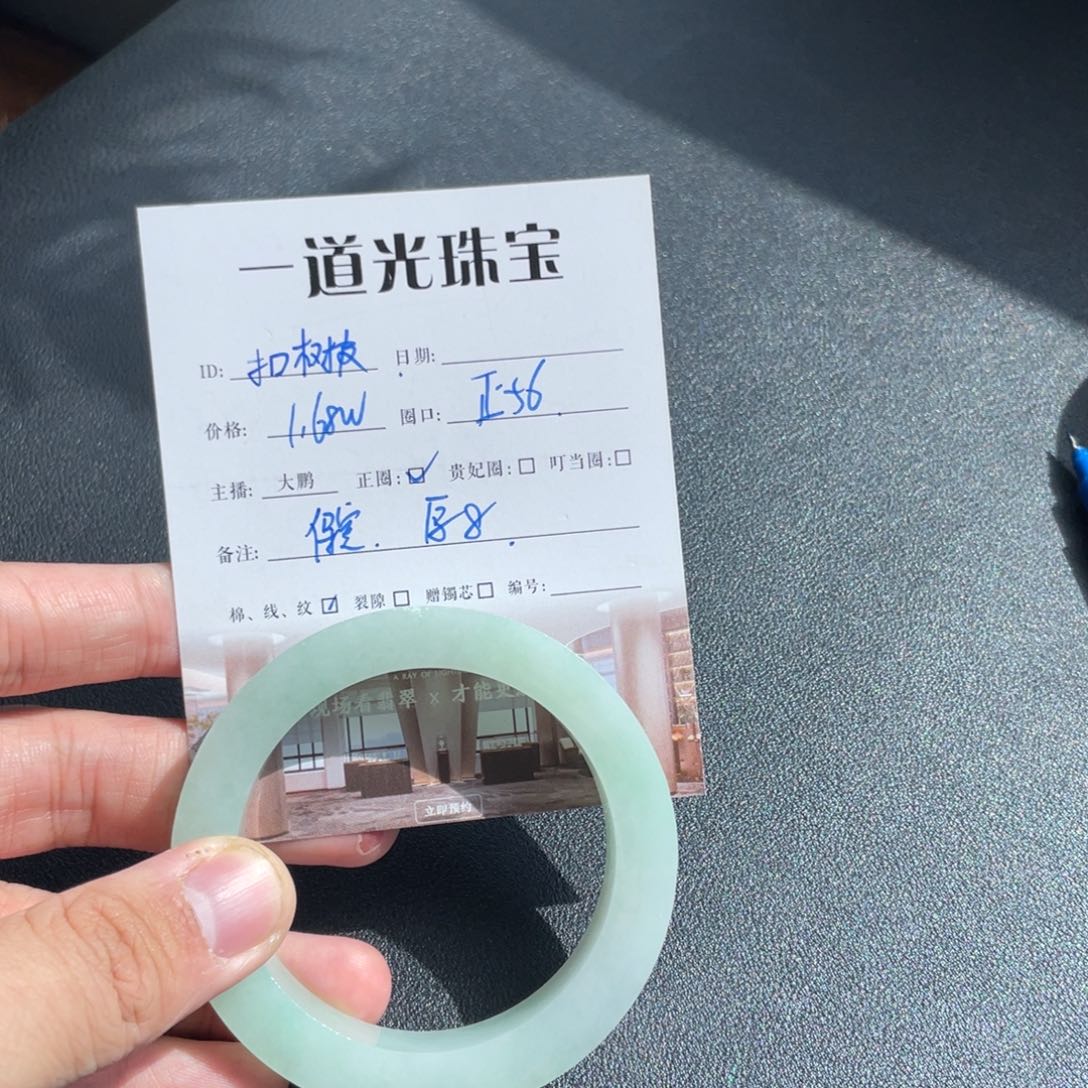 一道光珠宝
ID: 日期:
价格: 1.68W 圈口: 正56
主播: 大鹏 正圈: 贵妃圈: 叮当圈:
备注: 厚8
棉、线、纹 裂隙 赠镯芯 编号:
A RAY OF LIGHT
现场看翡翠 × 才能更
立即预约